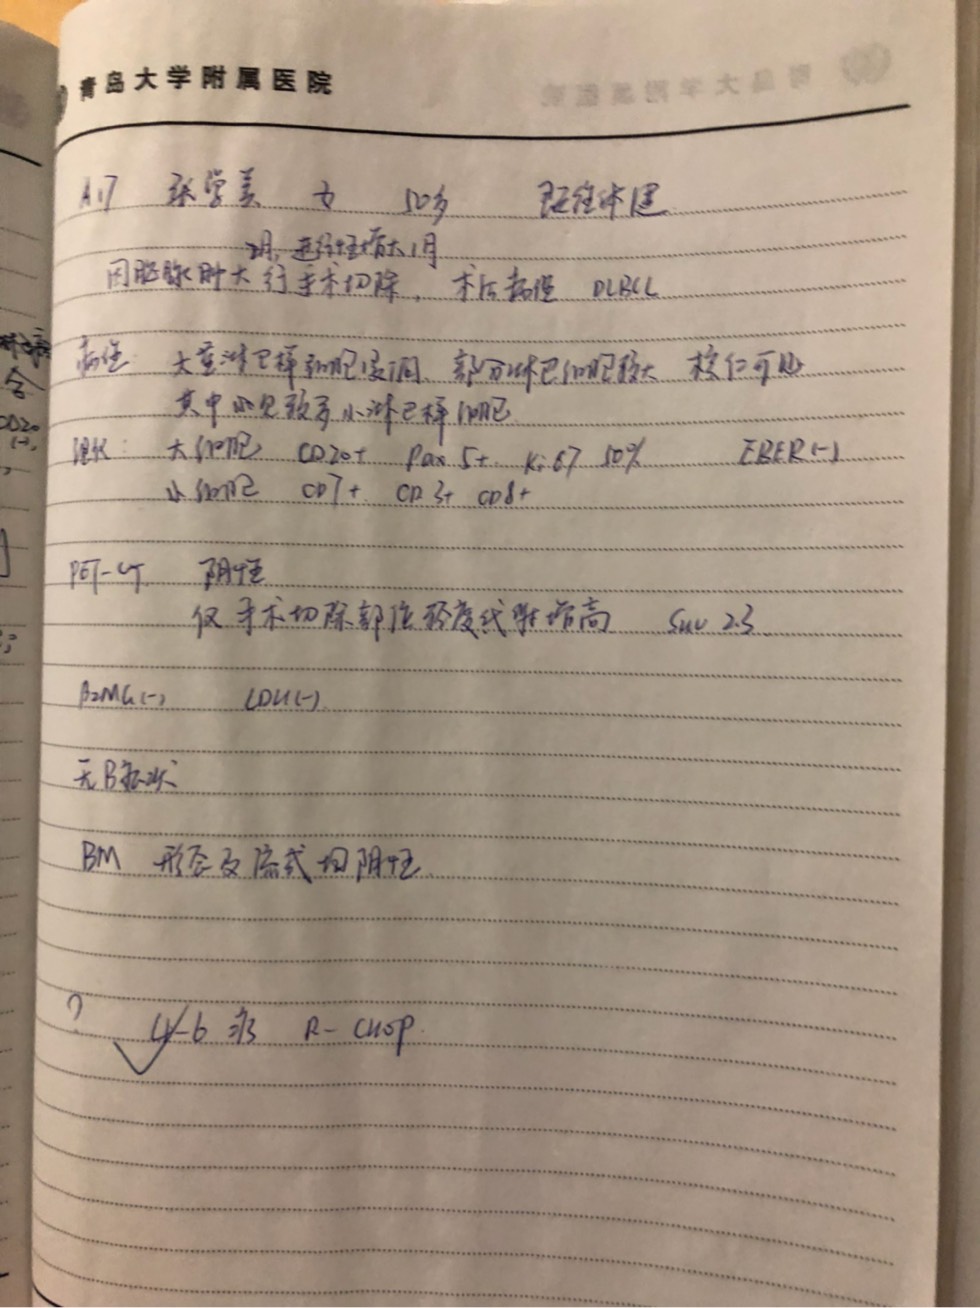 青岛大学附属医院
A17 张学美 女 50岁 既往体健
2月,进行性增大1月
因腮腺肿大行手术切除,术后病理 DLBCL
病理: 大量淋巴样细胞浸润、部分淋巴细胞较大 核仁可见
其中亦见较多小淋巴样细胞
免化: 大细胞 CD20+ Pax 5+ Ki67 50% EBER(-)
小细胞 CD7+ CD3+ CD8+
PET-CT 阴性
仅手术切除部位轻度代谢增高 SUV 2.3
β2MG(-) LDH(-)
无B症状
BM 形态及流式均阴性
? 4-6 疗 R-CHOP
CD20
(-),